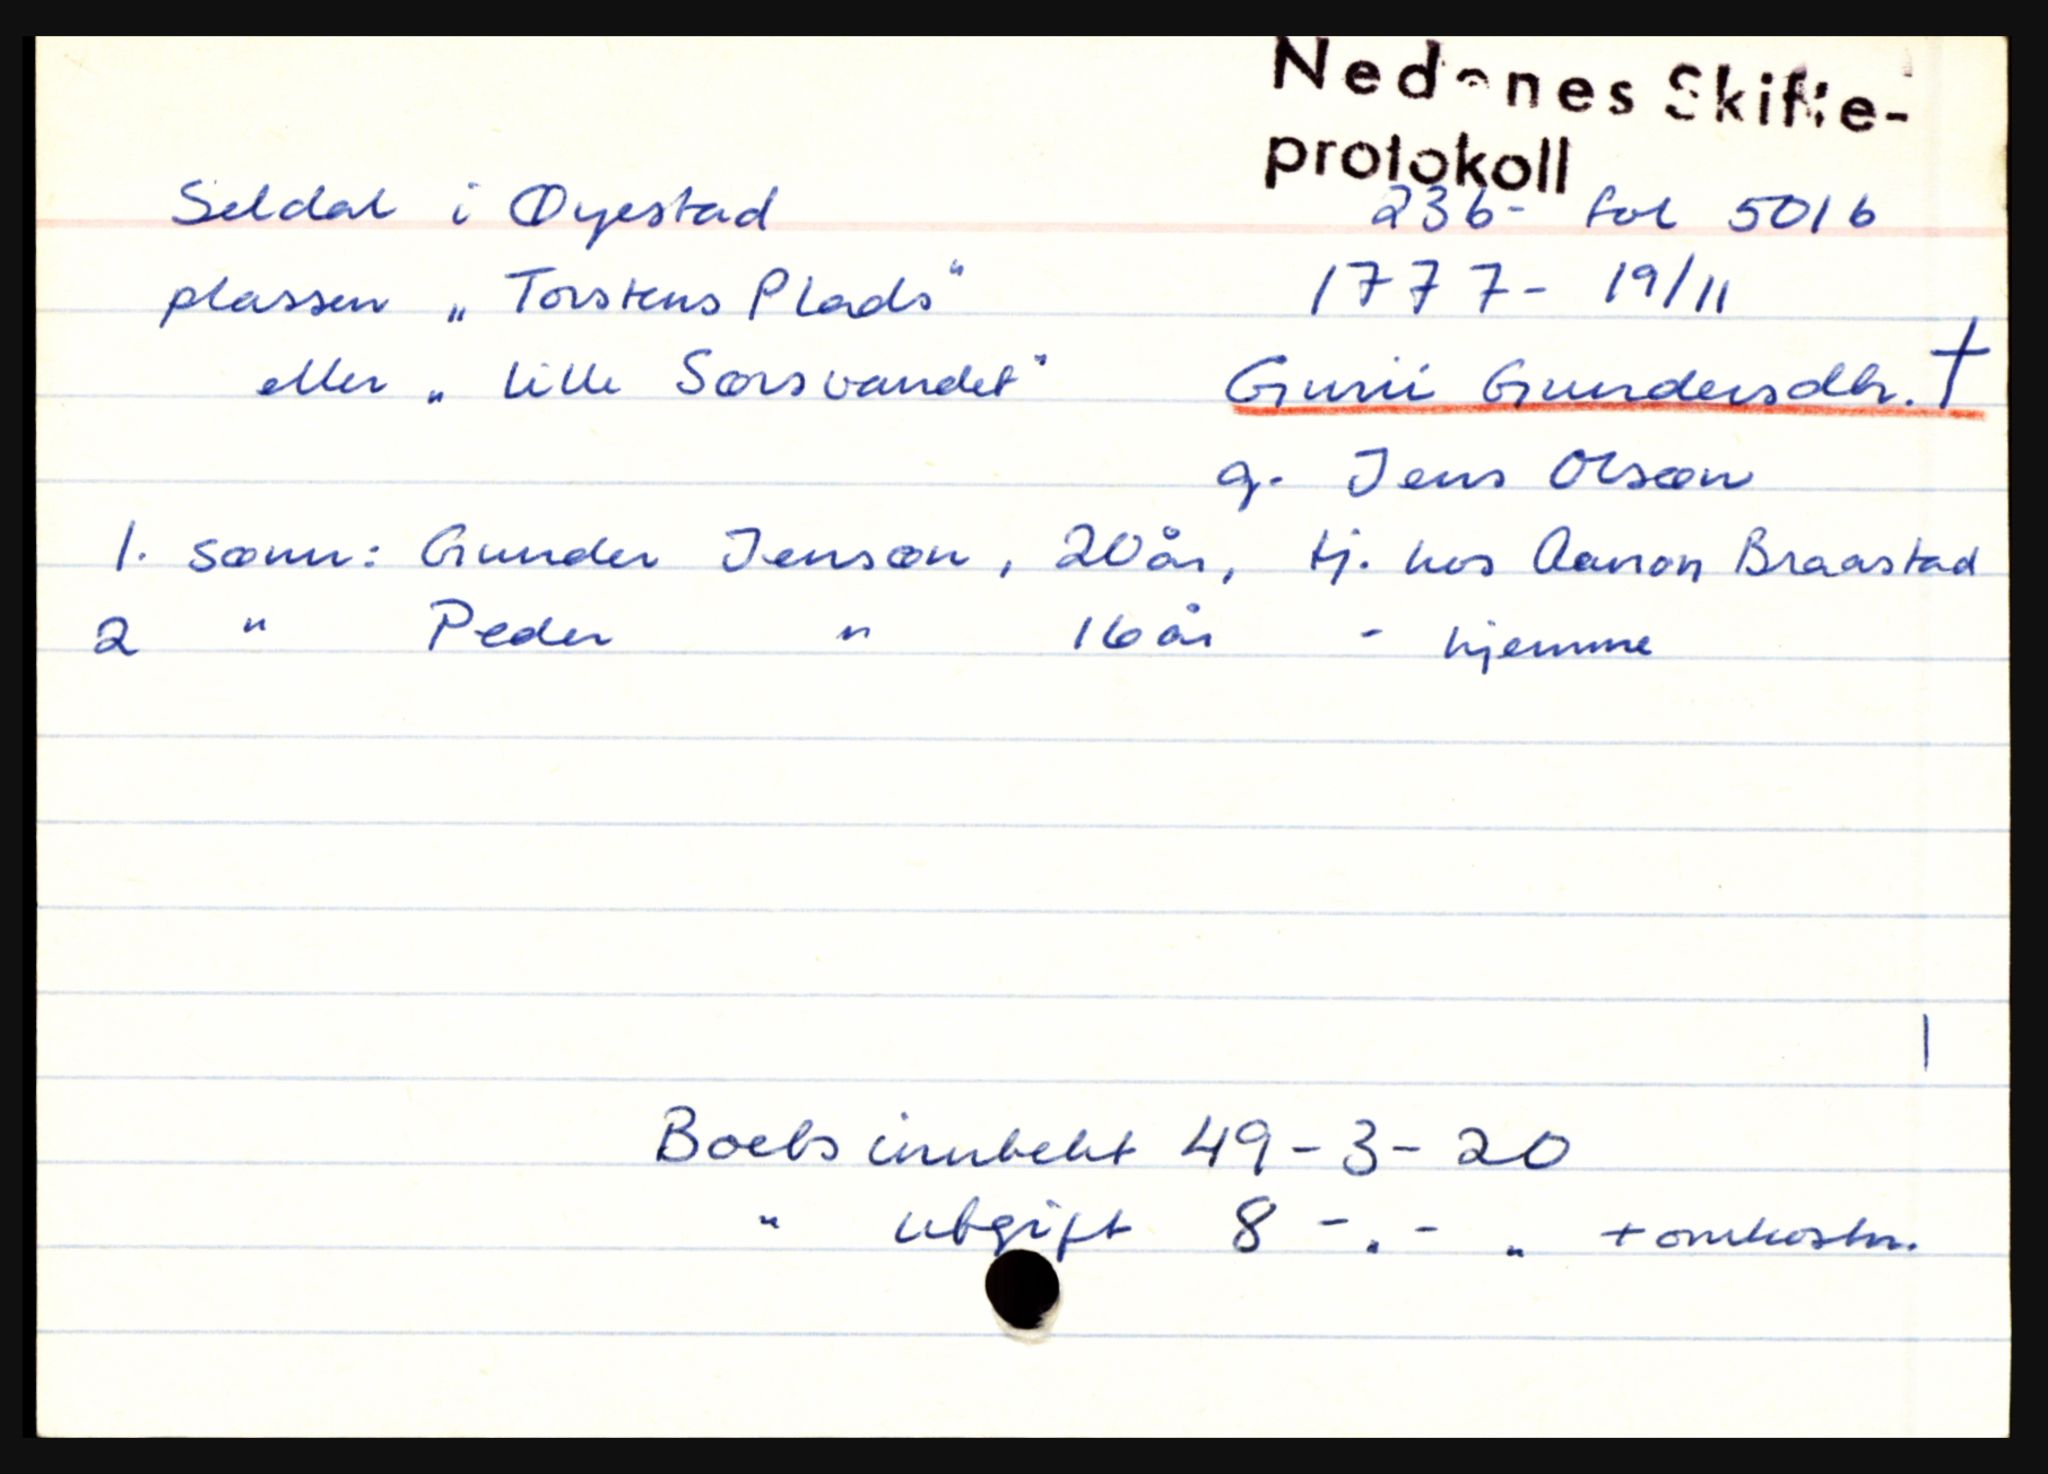 Nedenes Skifte-
protokoll
Seldal i Øyestad 23b- fol 501b
plassen „Torstens Plads" 1777- 19/11
eller „lille Sorsvandet" Gurii Gundersdtr. †
g. Jens Olsøn
1. sønn: Gunder Jensøn, 20 år, tj. hos Aanon Braastad
2 " Peder " 16 år - hjemme
Boets innteht 49-3-20
" utgift 8 - „ - „ + omkostn.